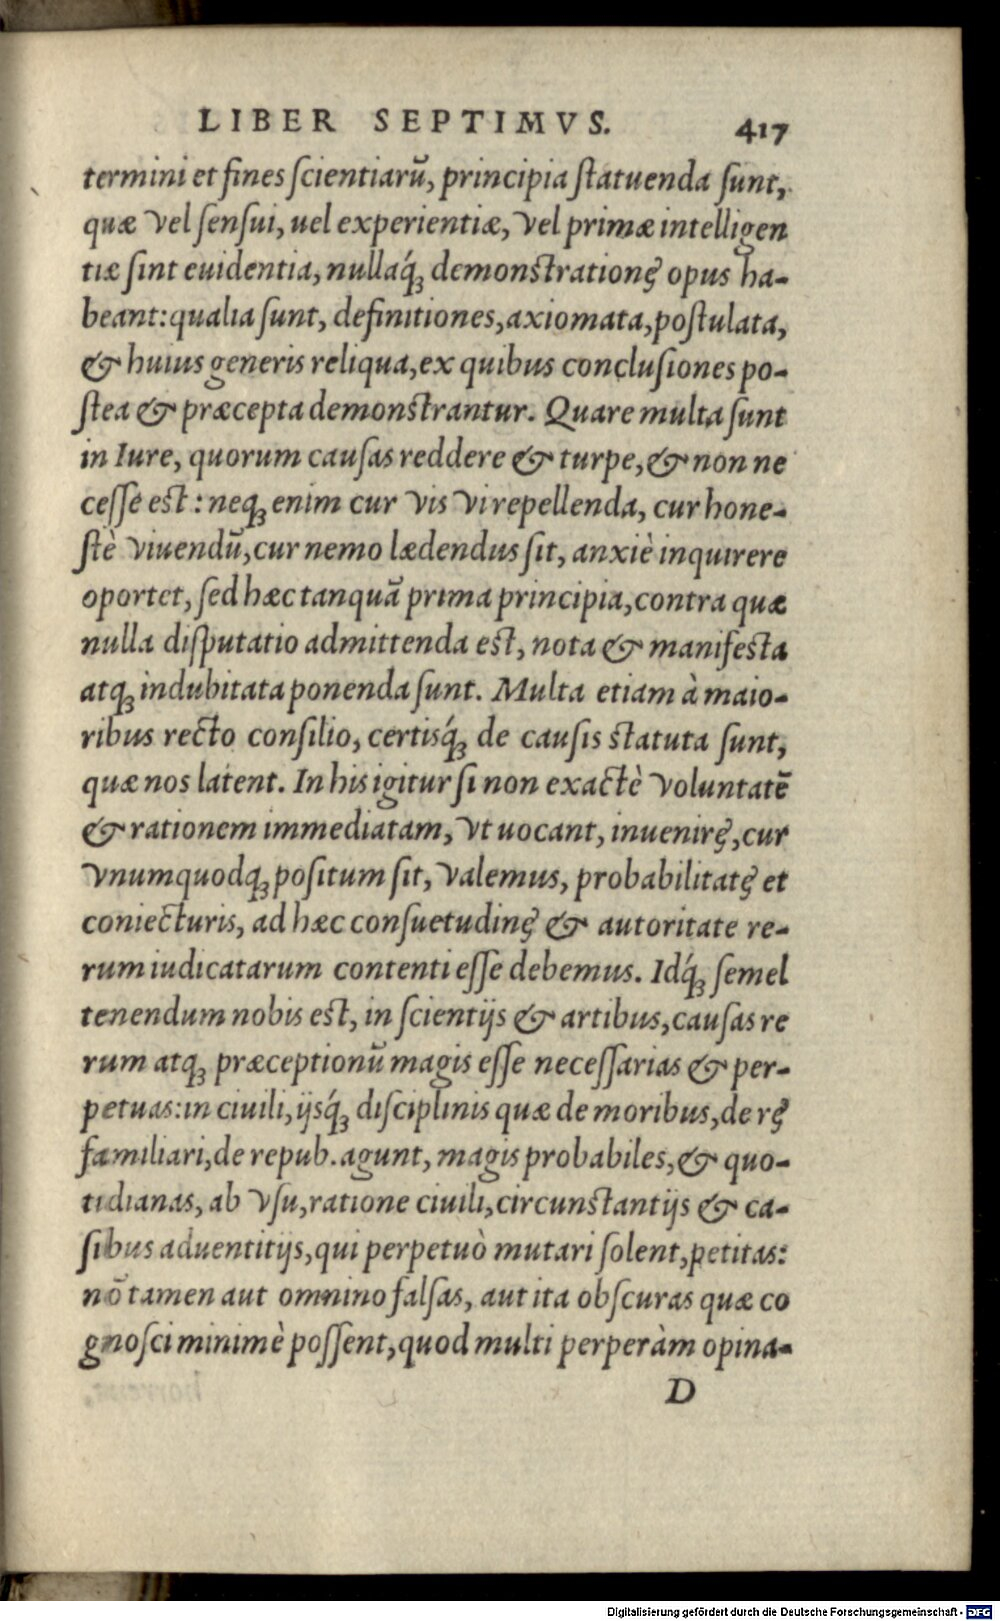 LIBER SEPTIMVS. 417
termini et fines scientiarũ, principia statuenda sunt,
quæ vel sensui, uel experientiæ, vel primæ intelligen
tiæ sint euidentia, nullaq́ꝫ demonstrationę opus ha-
beant: qualia sunt, definitiones, axiomata, postulata,
& huius generis reliqua, ex quibus conclusiones po-
stea & præcepta demonstrantur. Quare multa sunt
in Iure, quorum causas reddere & turpe, & non ne
cesse est: neqꝫ enim cur vis vi repellenda, cur hone-
stè viuendũ, cur nemo lædendus sit, anxiè inquirere
oportet, sed hæc tanquã prima principia, contra quæ
nulla disputatio admittenda est, nota & manifesta
atqꝫ indubitata ponenda sunt. Multa etiam à maio-
ribus recto consilio, certisq́ꝫ de causis statuta sunt,
quæ nos latent. In his igitur si non exactè voluntatẽ
& rationem immediatam, vt uocant, inuenirę, cur
vnumquodqꝫ positum sit, valemus, probabilitatę et
coniecturis, ad hæc consuetudinę & autoritate re-
rum iudicatarum contenti esse debemus. Idq́ꝫ semel
tenendum nobis est, in scientijs & artibus, causas re
rum atqꝫ præceptionũ magis esse necessarias & per-
petuas: in ciuili, ijsq́ꝫ disciplinis quæ de moribus, de rę
familiari, de repub. agunt, magis probabiles, & quo-
tidianas, ab vsu, ratione ciuili, circunstantijs & ca-
sibus aduentitijs, qui perpetuò mutari solent, petitas:
nõ tamen aut omnino falsas, aut ita obscuras quæ co
gnosci minimè possent, quod multi perperàm opina-
D
Digitalisierung gefördert durch die Deutsche Forschungsgemeinschaft - DFG